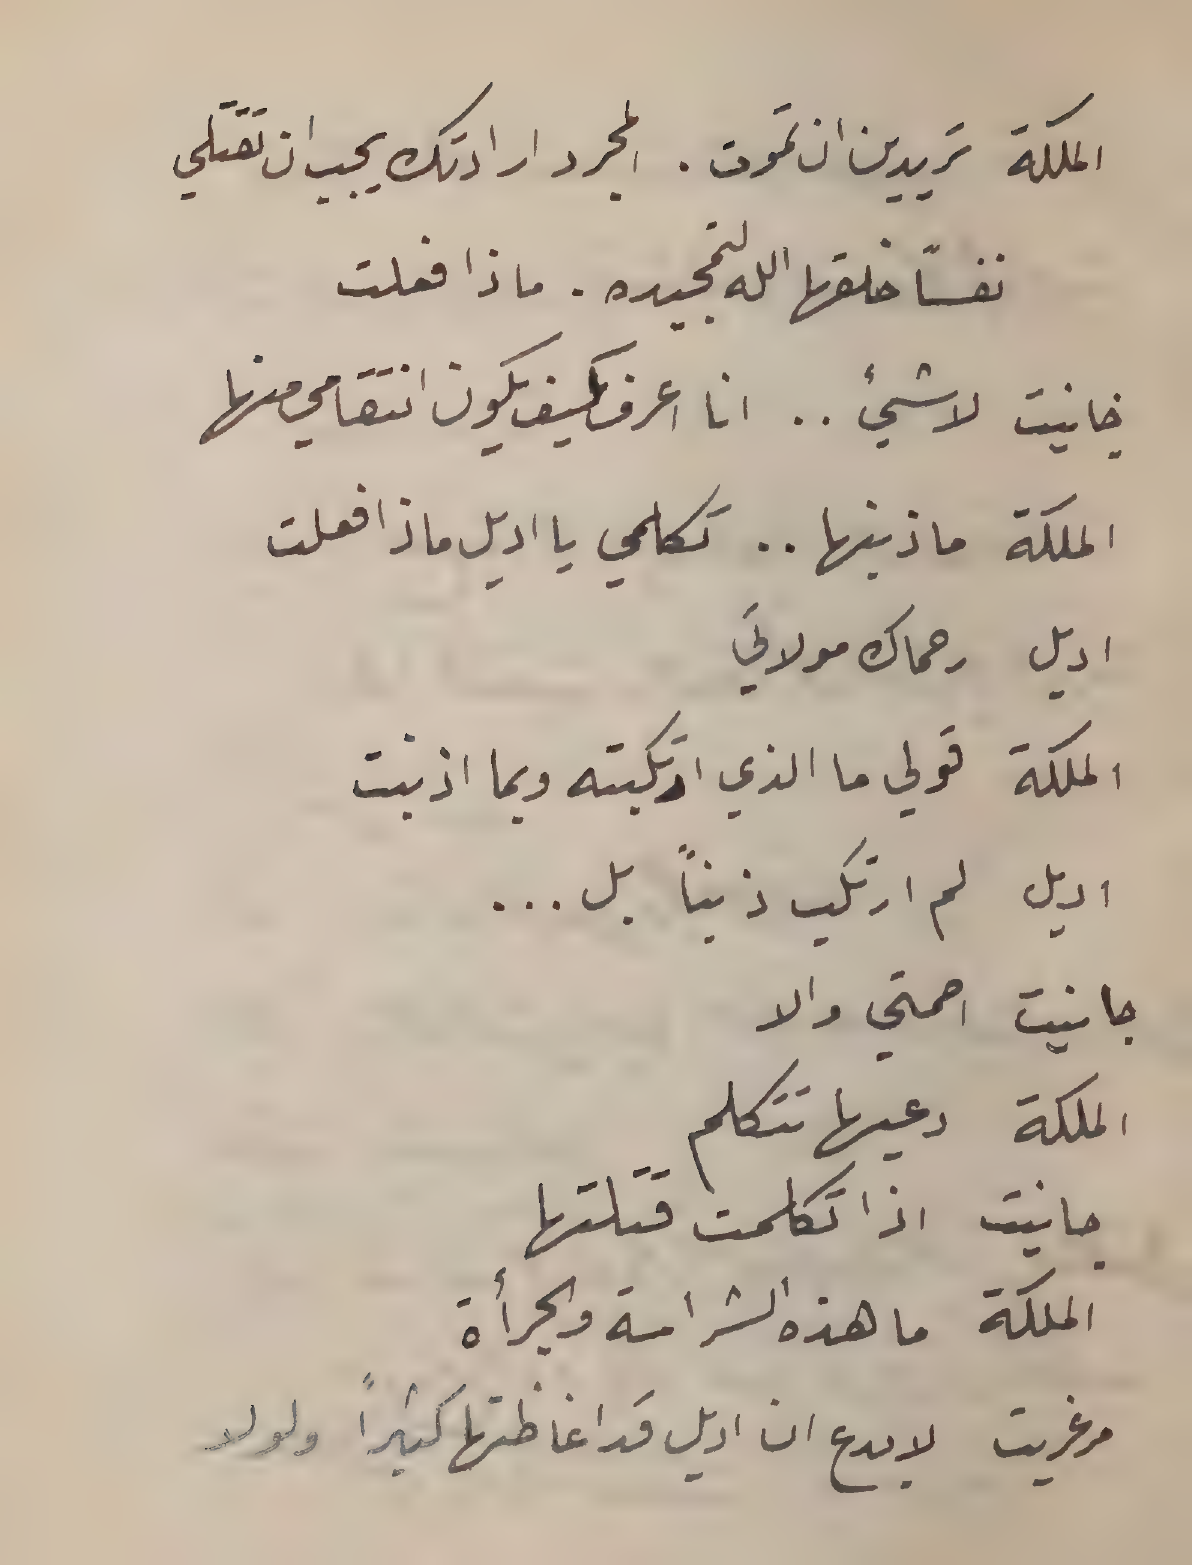 الملكة تريدين ان تموت . المجرد ارادتك يجب ان تقتلي
نفساً خلقها الله لتمجيده . ماذا فعلت
جانيت لا شيئ .. انا اعرف كيف يكون انتقامي منها
الملكة ما ذنبها .. تكلمي يا اديل ماذا فعلت
اديل رحماك مولاتي
الملكة قولي ما الذي ارتكبته وبما اذنبت
اديل لم ارتكب ذنباً بل ...
جانيت اصمتي والا
الملكة دعيها تتكلم
جانيت اذا تكلمت قتلتها
الملكة ما هذه الشراسة والجرأة
مرغريت لا بدع ان اديل قد اغاظتها كثيراً ولولا